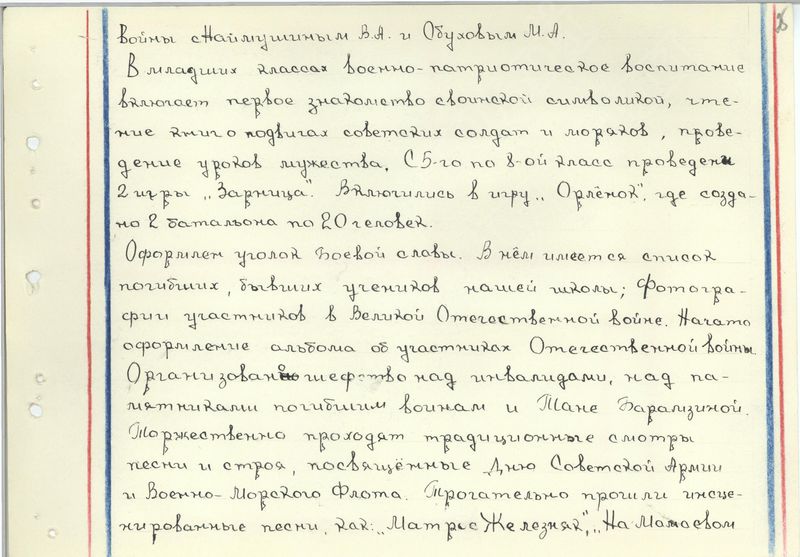 войны с Наймушиным В.А. и Обуховым М.А.
В младших классах военно-патриотическое воспитание
включает первое знакомство с воинской символикой, чте-
ние книг о подвигах советских солдат и моряков, прове-
дение уроков мужества. С 5-го по 8-ой класс проведены
2 игры „Зарница". Включились в игру „Орлёнок", где созда-
но 2 батальона по 20 человек.
Оформлен уголок Боевой славы. В нём имеется список
погибших, бывших учеников нашей школы; Фотогра-
фии участников в Великой Отечественной войне. Начато
оформление альбома об участниках Отечественной войны.
Организовано шефство над инвалидами, над па-
мятниками погибшим воинам и Тане Барамзиной.
Торжественно проходят традиционные смотры
песни и строя, посвящённые Дню Советской Армии
и Военно-Морского Флота. Трогательно прошли инсце-
нированные песни, как: „Матрос Железняк", „На Мамаевом